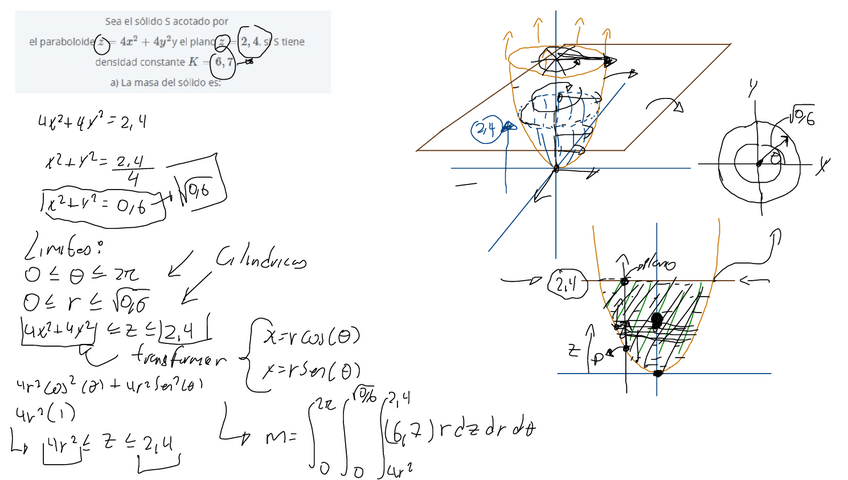 Sea el sólido S acotado por
el paraboloide z = 4x² + 4y² y el plano z = 2, 4. si S tiene
densidad constante K = 6, 7
a) La masa del sólido es:
4x²+4y²=2,4
x²+y²=2,4/4
x²+y²=0,6 √0,6
Limites:
0 ≤ θ ≤ 2π
Cilindricas
0 ≤ r ≤ √0,6
4x²+4y² ≤ z ≤ 2,4
transformar
x=rcos(θ)
y=rsen(θ)
4r²cos²(θ) + 4r²sen²(θ)
4r²(1)
4r² ≤ z ≤ 2,4
m= ∫₀^2π ∫₀^√0,6 ∫_4r²^2,4 (6,7) r dz dr dθ
2,4
Y
√0,6
θ
X
plano
2,4
z
P